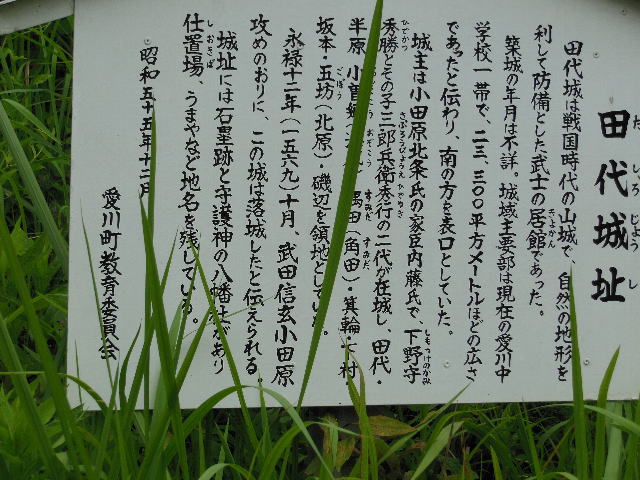 田代城址
たしろじょうし
田代城は戦国時代の山城で、自然の地形を
利して防備とした武士の居館であった。
きょかん
築城の年月は不詳。城域主要部は現在の愛川中
学校一帯で、二三、三〇〇平方メートルほどの広さ
であったと伝わり、南の方を表口としていた。
城主は小田原北条氏の家臣内藤氏で、下野守
しもつけのかみ
秀勝とその子三郎兵衛秀行の二代が在城し、田代・
ひでかつ
さぶろうひょうえひでゆき
半原
小曽
角田(角田)・箕輪
村
おぞごう
すみだ
すみだ
坂本・五坊(北原)・磯辺を領地としていた。
ごぼう
永禄十二年(一五六九)十月、武田信玄小田原
攻めのおりに、この城は落城したと伝えられる。
城址には石塁跡と守護神の八幡
があり
仕置場、うまやなど地名を残している。
しおきば
昭和五十五年十二月
愛川町教育委員会